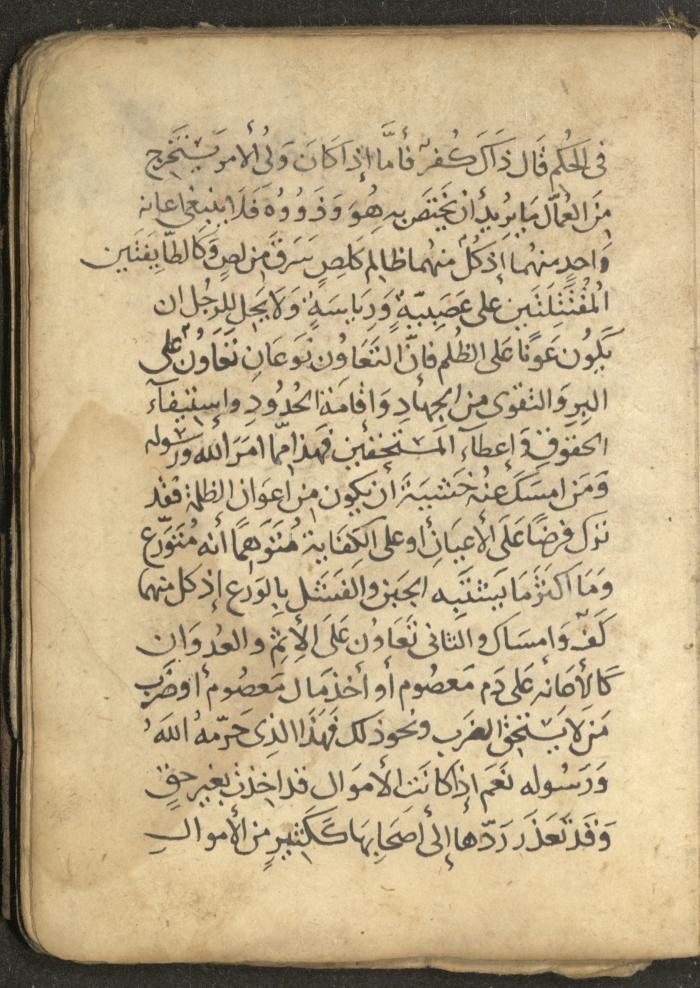 في الحكم قال ذاك كفر فأما إذا كان ولي الأمر يستخرج
من العمال ما يريد أن يختص به هو وذووه فلا ينبغي اعانه
واحد منهما إذ كل منهما ظالم كلص سرق من لص وكالطايفتين
المقتتلتين على عصبية ورياسة ولا يحل للرجل ان
يكون عونا على الظلم فان التعاون نوعان تعاون على
البر والتقوى من الجهاد واقامة الحدود واستيفاء
الحقوق وإعطاء المستحقين فهذا مما امر الله ورسوله
ومن امسك عنه خشية أن يكون من أعوان الظلمة فقد
ترك فرضا على الأعيان أو على الكفاية متوهما أنه متورع
وما اكثر ما يشتبه الجبن والفشل بالورع إذ كل منهما
كف وامساك والثاني تعاون على الإثم والعدوان
كالأعانه على دم معصوم أو أخذ مال معصوم أو ضرب
من لا يستحق الضرب ونحو ذلك فهذا الذي حرمه الله
ورسوله نعم إذا كانت الأموال قد اخذت بغير حق
وقد تعذر ردها إلى أصحابها ككثير من الأموال